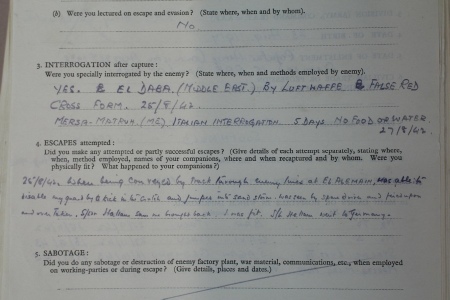 (b) Were you lectured on escape and evasion? (State where, when and by whom).
No
3. INTERROGATION after capture :
Were you specially interrogated by the enemy? (State where, when and methods employed by enemy).
YES. EL DABA. (MIDDLE EAST.) BY LUFTWAFFE FALSE RED
CROSS FORM. 25/8/42.
MERSA-MATRUH. (ME) ITALIAN INTERROGATION 5 DAYS NO FOOD OR WATER
27/8/42.
4. ESCAPES attempted :
Did you make any attempted or partly successful escapes? (Give details of each attempt separately, stating where,
when, method employed, names of your companions, where and when recaptured and by whom. Were you
physically fit? What happened to your companions?)
When being conveyed by truck through enemy lines at EL ALEMAIN, was able to
my guard by a kick in the and jumped into sand storm. was seen by
and over taken. Italian I was fit. Italian went to Germany.
5. SABOTAGE :
Did you do any sabotage or destruction of enemy factory plant, war material, communications, etc., when employed
on working-parties or during escape? (Give details, places and dates.)